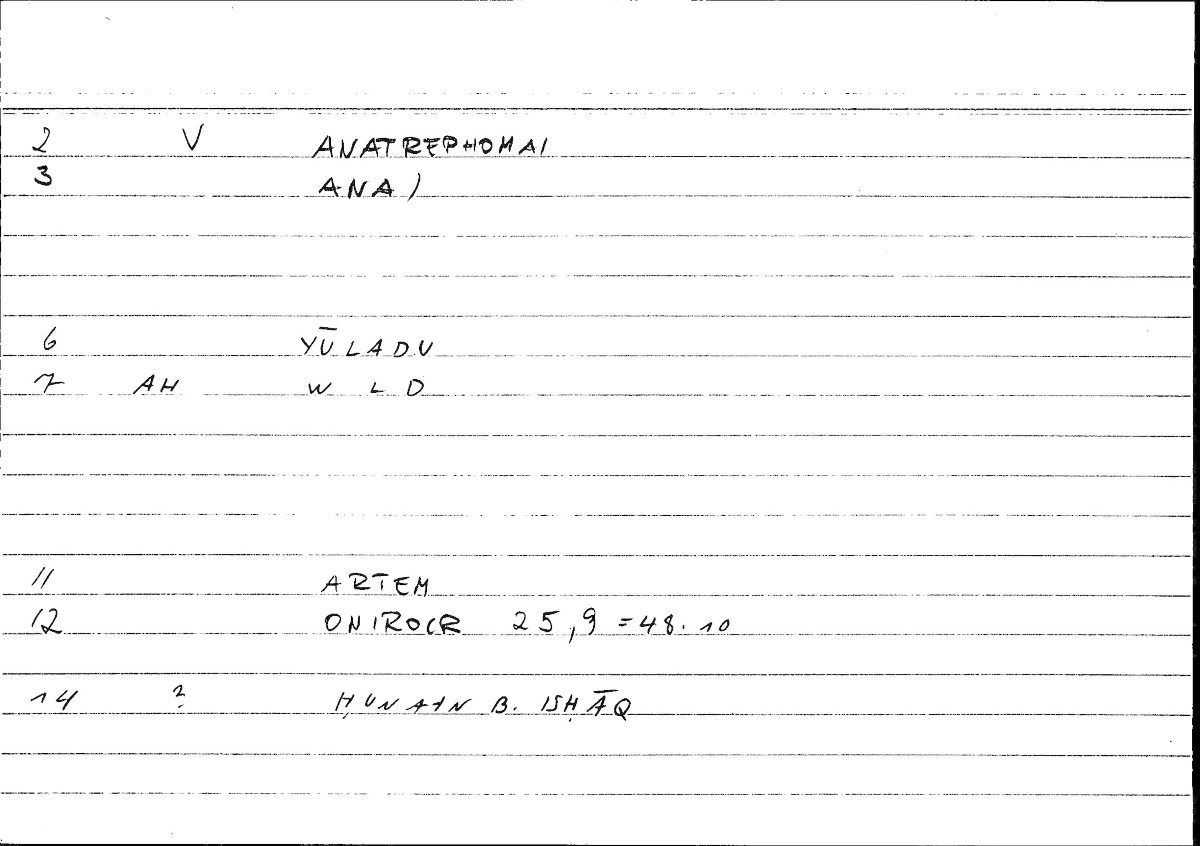 2 V ANATREPHOMAI
3 ANA)
6 YŪLADU
7 AH W L D
11 ARTEM
12 ONIROCR 25,9 = 48.10
14 ? ḤUNAIN B. ISḤĀQ